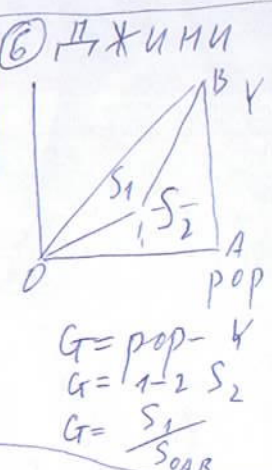 ⑥ ДЖИНИ
B Y
S₁
S₂
O A
pop
G = pop - Y
G = 1 - 2 S₂
G = S₁ / S_OAB